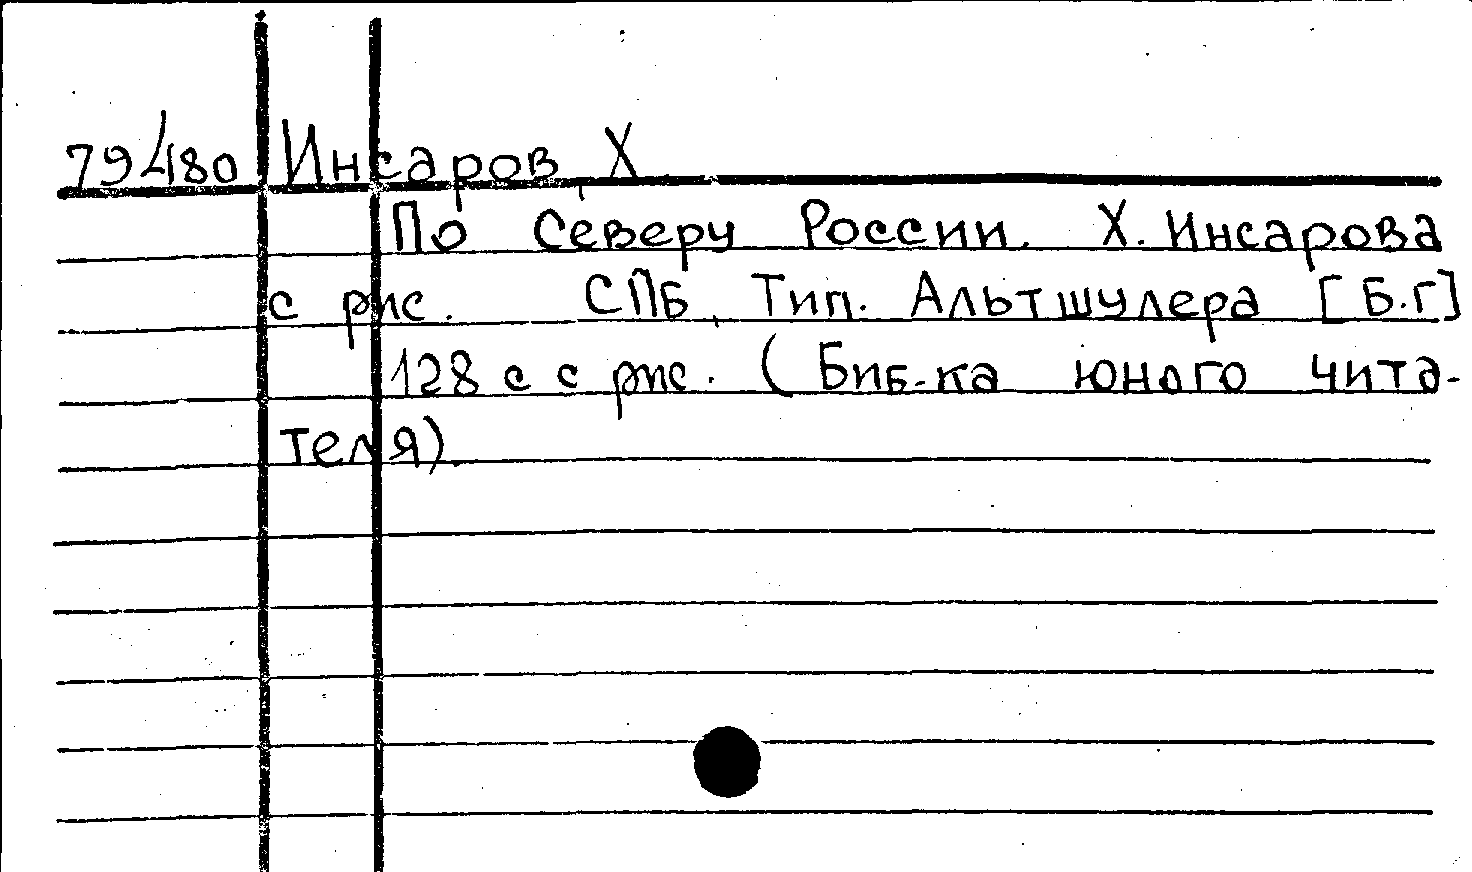 79480 Инсаров, Х
По Северу России. Х. Инсарова
с рис. СПБ, Тип. Альтшулера [Б.Г]
128 с с рис. (Биб-ка юного чита-
теля)